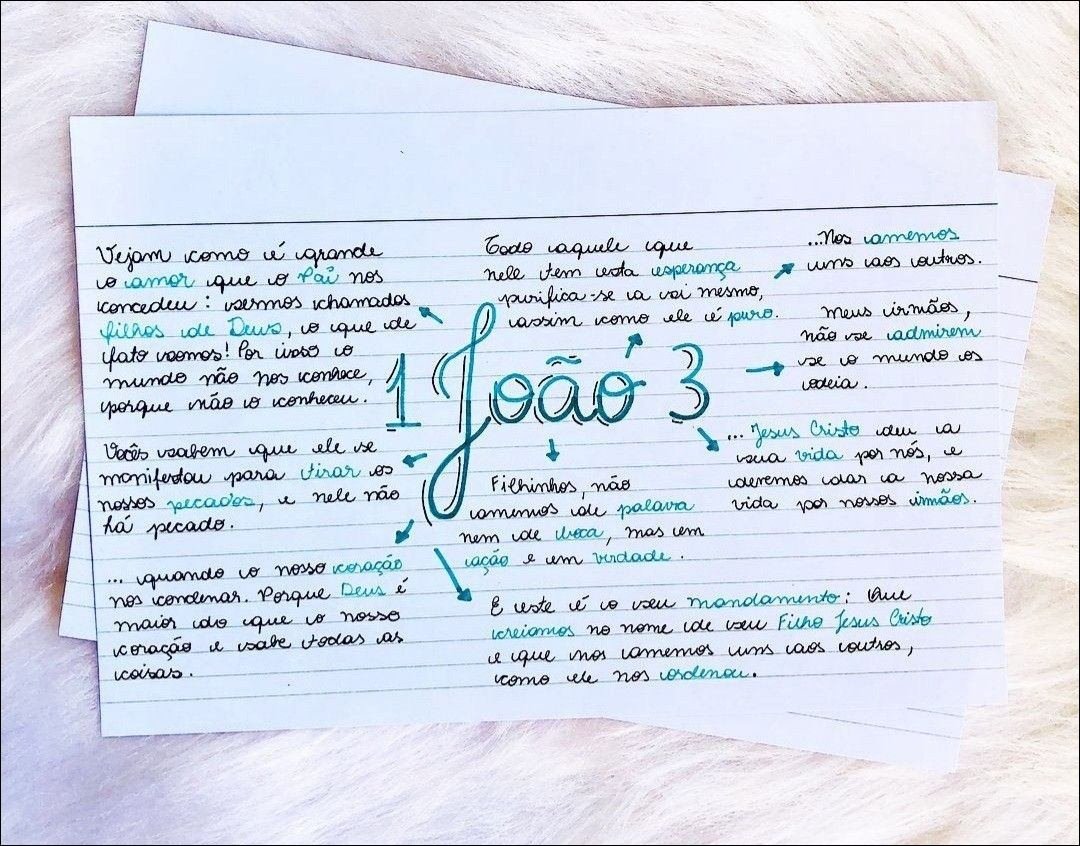 Vejam como é grande
o amor que o Pai nos
concedeu: sermos chamados
filhos de Deus, o que de
fato somos! Por isso o
mundo não nos conhece,
porque não o conheceu.
Vocês sabem que ele se
manifestou para tirar os
nossos pecados, e nele não
há pecado.
... quando o nosso coração
nos condenar. Porque Deus é
maior do que o nosso
coração e sabe todas as
coisas.
1 João 3
Todo aquele que
nele tem esta esperança
purifica-se a si mesmo,
assim como ele é puro.
Filhinhos, não
amemos de palavra
nem de boca, mas em
ação e em verdade.
E este é o seu mandamento: Que
creiamos no nome de seu Filho Jesus Cristo
e que nos amemos uns aos outros,
como ele nos ordenou.
...Nos amemos
uns aos outros.
Meus irmãos,
não se admirem
se o mundo os
odeia.
... Jesus Cristo deu a
sua vida por nós, e
devemos dar a nossa
vida por nossos irmãos.